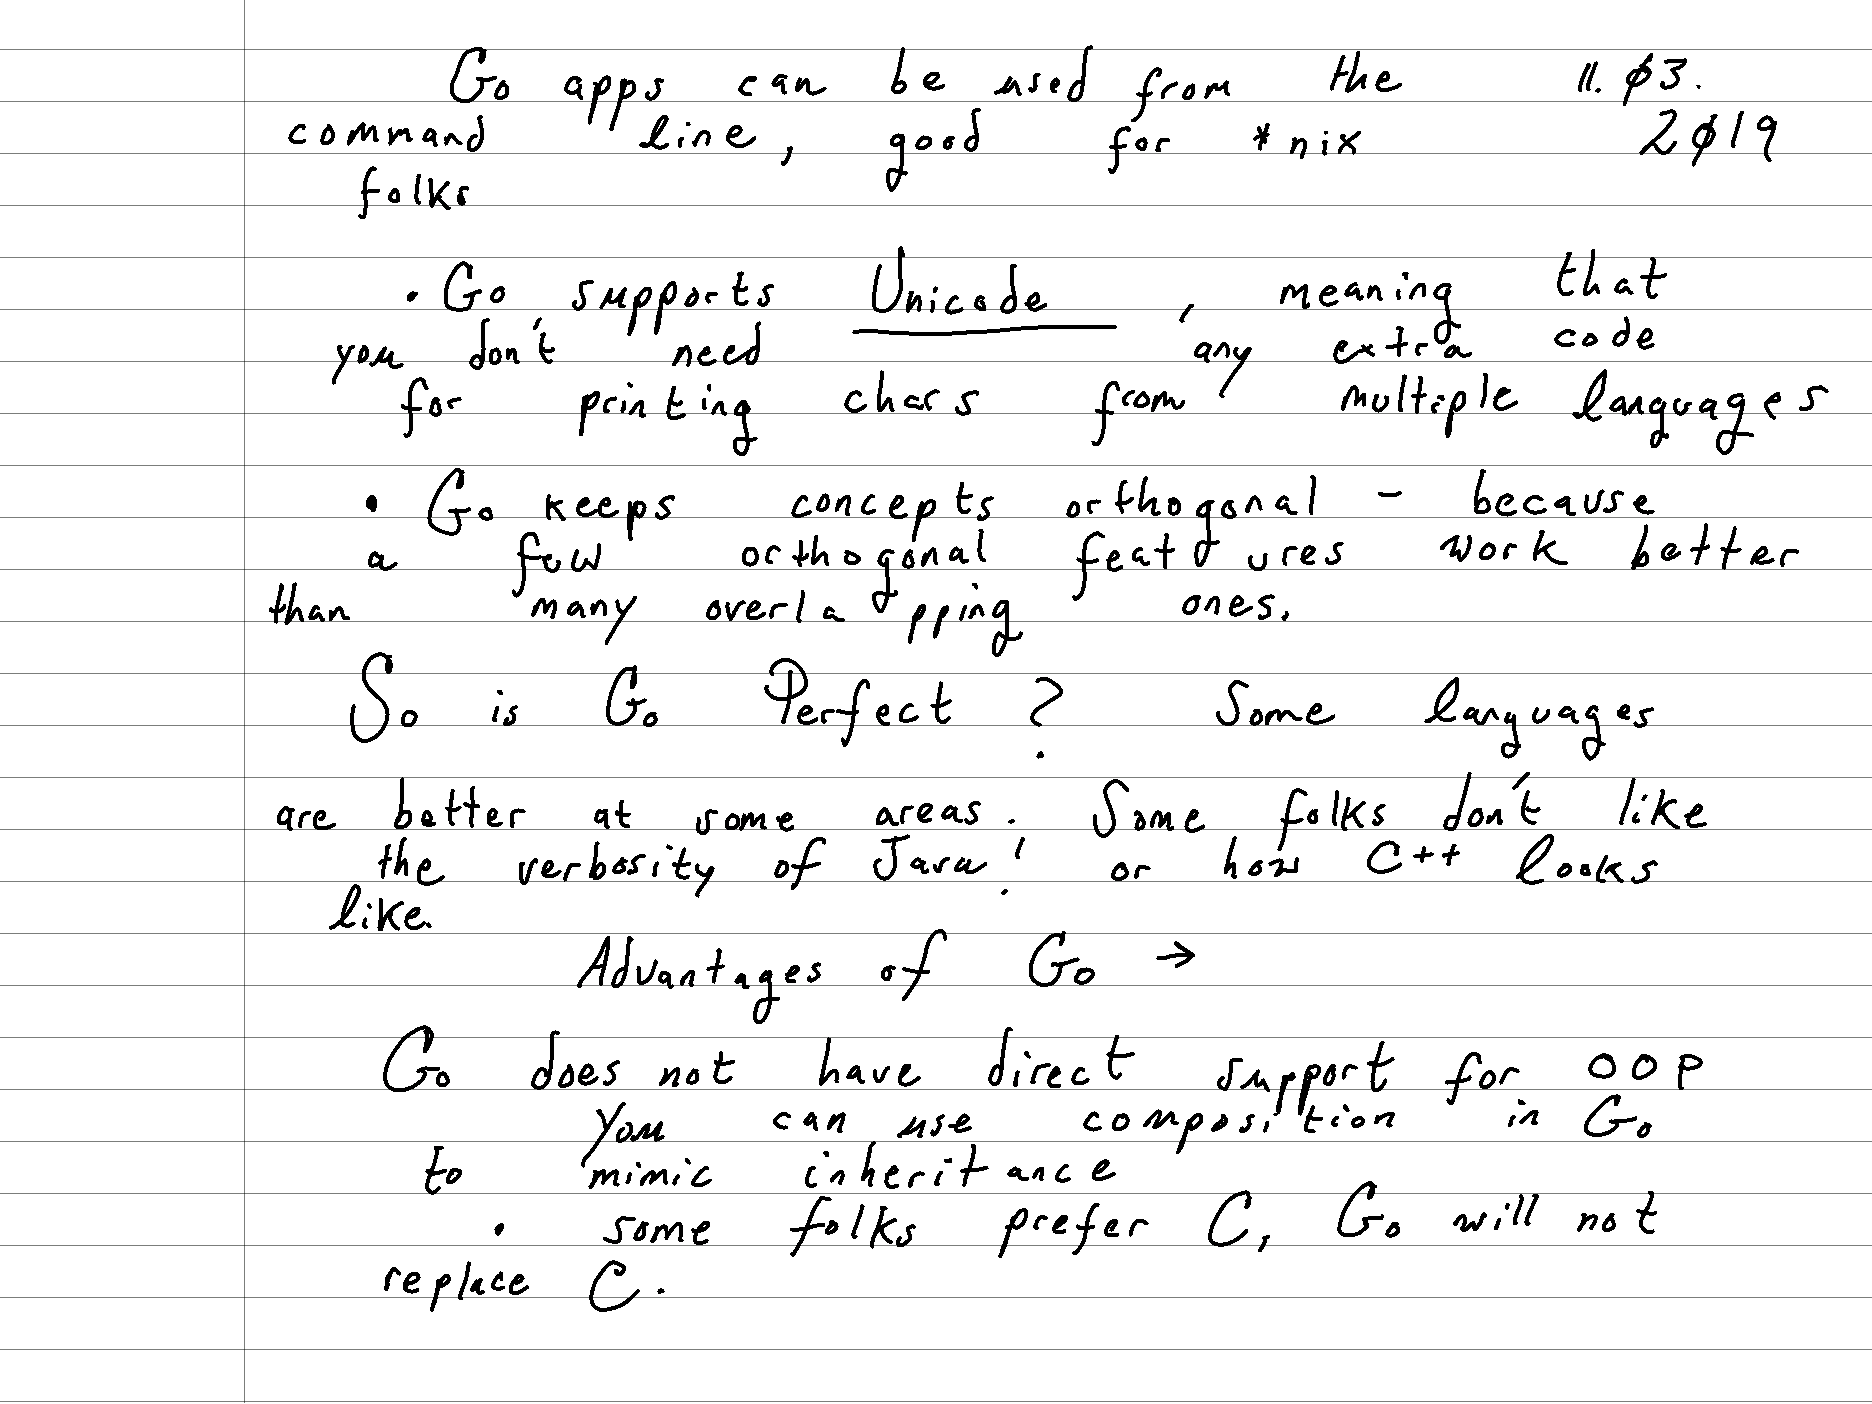 Go apps can be used from the 11. Ø3.
command line, good for *nix 2Ø19
folks
• Go supports Unicode, meaning that
you don't need any extra code
for printing chars from multiple languages
• Go keeps concepts orthogonal - because
a few orthogonal features work better
than many overlapping ones.
So is Go Perfect? Some languages
are better at some areas. Some folks don't like
the verbosity of Java! or how C++ looks
like.
Advantages of Go →
Go does not have direct support for OOP
You can use composition in Go
to mimic inheritance
• some folks prefer C, Go will not
replace C.